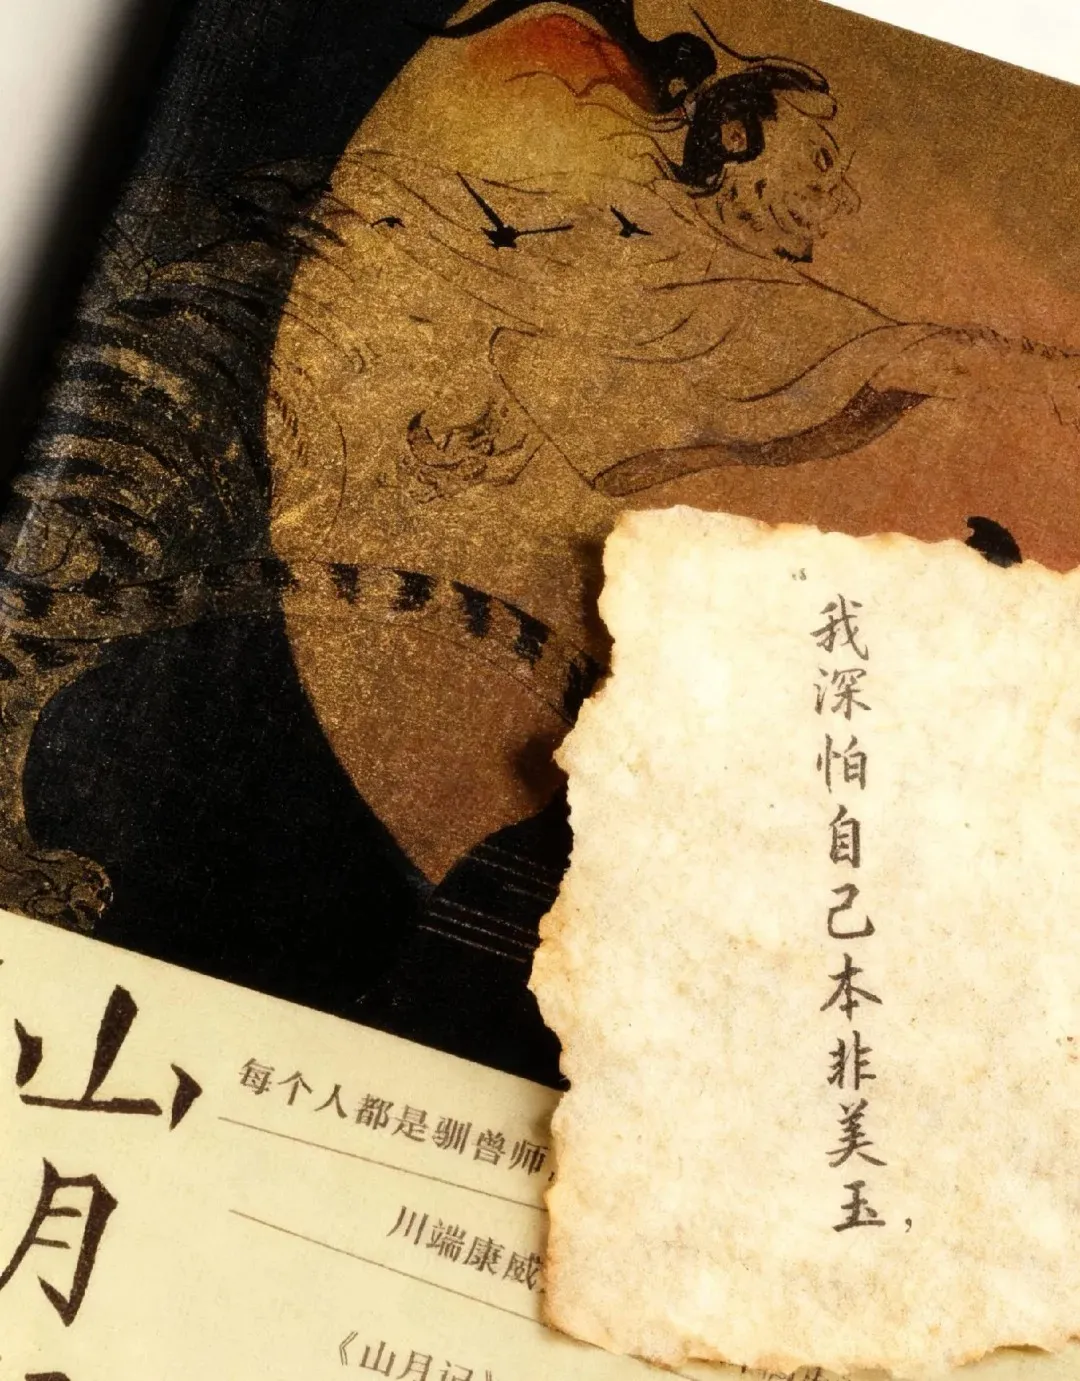 我深怕自己本非美玉，
山月
每个人都是驯兽师，
川端康
《山月记》